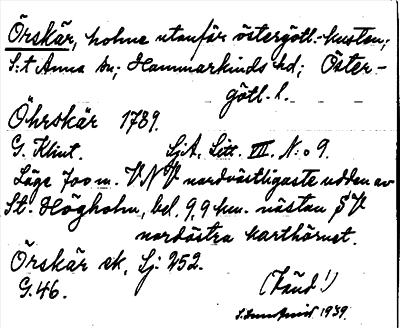 Örskär, holme utanför östergötl.-kusten;
S:t Anna sn; Hammarkinds hd; Öster-
götl. l.
Öhrskär 1789.
G. Klint. SjA, Litt. VII. N:o 9.
Läge 700 m. VNV nordvästligaste udden av
St. Högholm, bel. 9,9 km. nästan SV
nordöstra karthörnet.
Örskär ek, Sj: 252.
G. 46. (Känd!)
1939.